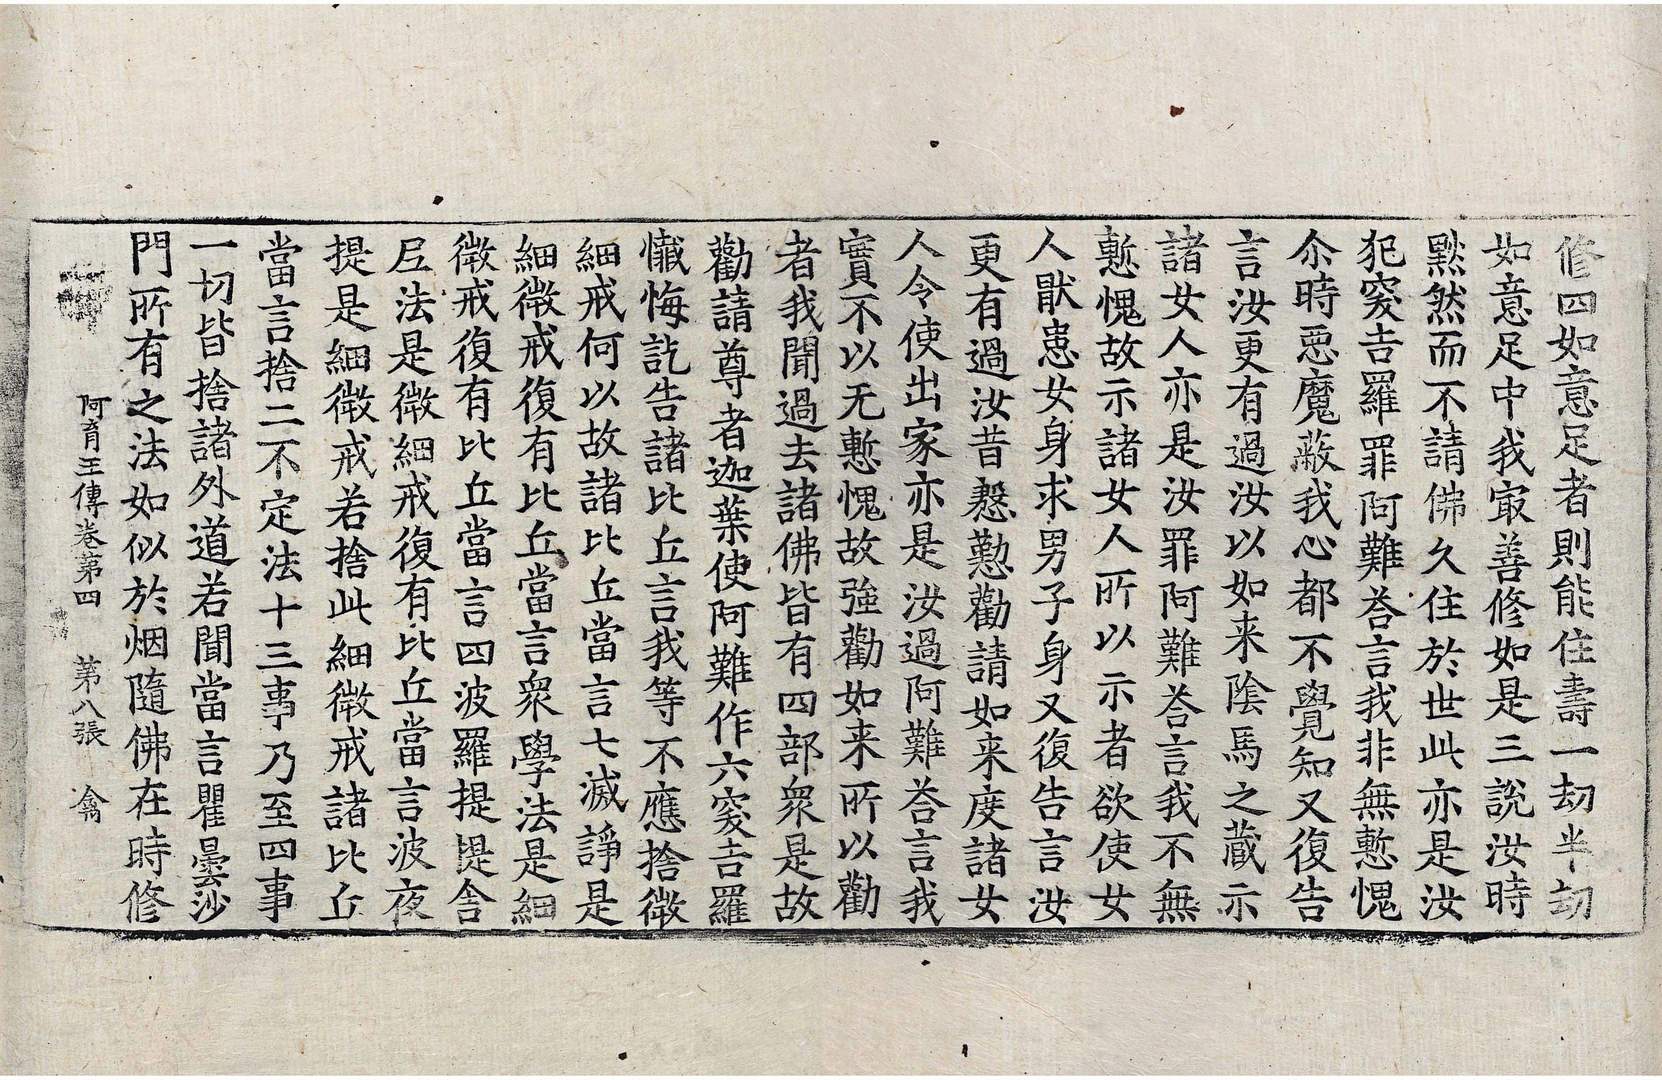 修四如意足者則能住壽一劫半劫
如意足中我㝡善修如是三說汝時
黙然而不請佛久住於世此亦是汝
犯突吉羅罪阿難荅言我非無慙愧
尒時惡魔蔽我心都不覺知又復告
言汝更有過汝以如来陰馬之藏示
諸女人亦是汝罪阿難荅言我不無
慙愧故示諸女人所以示者欲使女
人猒患女身求男子身又復告言汝
更有過汝昔慇懃勸請如来度諸女
人令使出家亦是汝過阿難荅言我
實不以无慙愧故強勸如来所以勸
者我聞過去諸佛皆有四部衆是故
勸請尊者迦葉使阿難作六突吉羅
懺悔訖告諸比丘言我等不應捨微
細戒何以故諸比丘當言七滅諍是
細微戒復有比丘當言衆學法是細
微戒復有比丘當言四波羅提提舍
尼法是微細戒復有比丘當言波夜
提是細微戒若捨此細微戒諸比丘
當言捨二不定法十三事乃至四事
一切皆捨諸外道若聞當言瞿曇沙
門所有之法如似於烟隨佛在時修
阿育王傳卷第四 第八張 禽